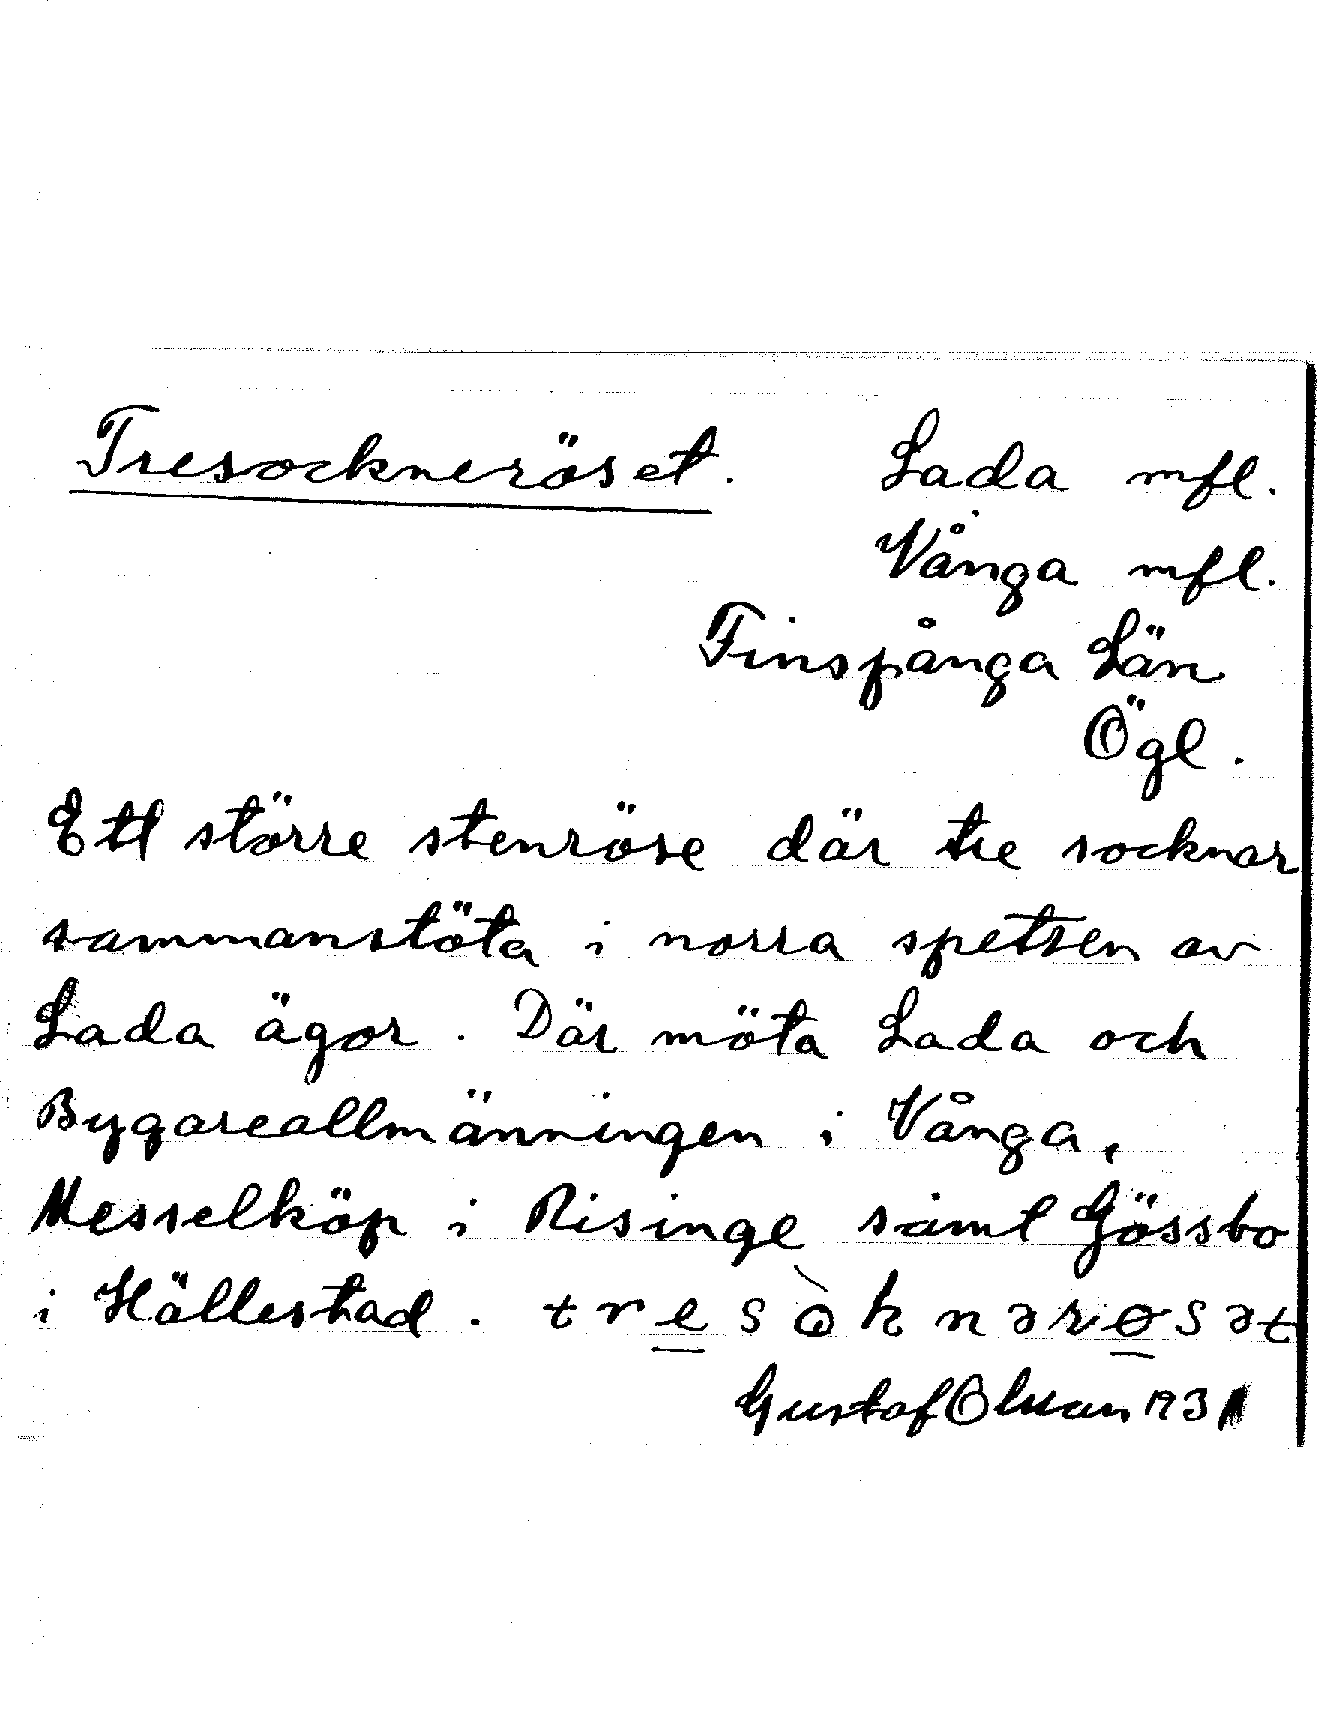 Tresockneröset. Lada mfl.
Vånga mfl.
Finspånga Län
Ögl.
Ett större stenröse där tre socknar
sammanstöta i norra spetsen av
Lada ägor. Där möta Lada och
Bygareallmänningen i Vånga,
Messelköp i Risinge samt Gössbo
i Hällestad. tresòknərøsət
Gustaf Olsson 193